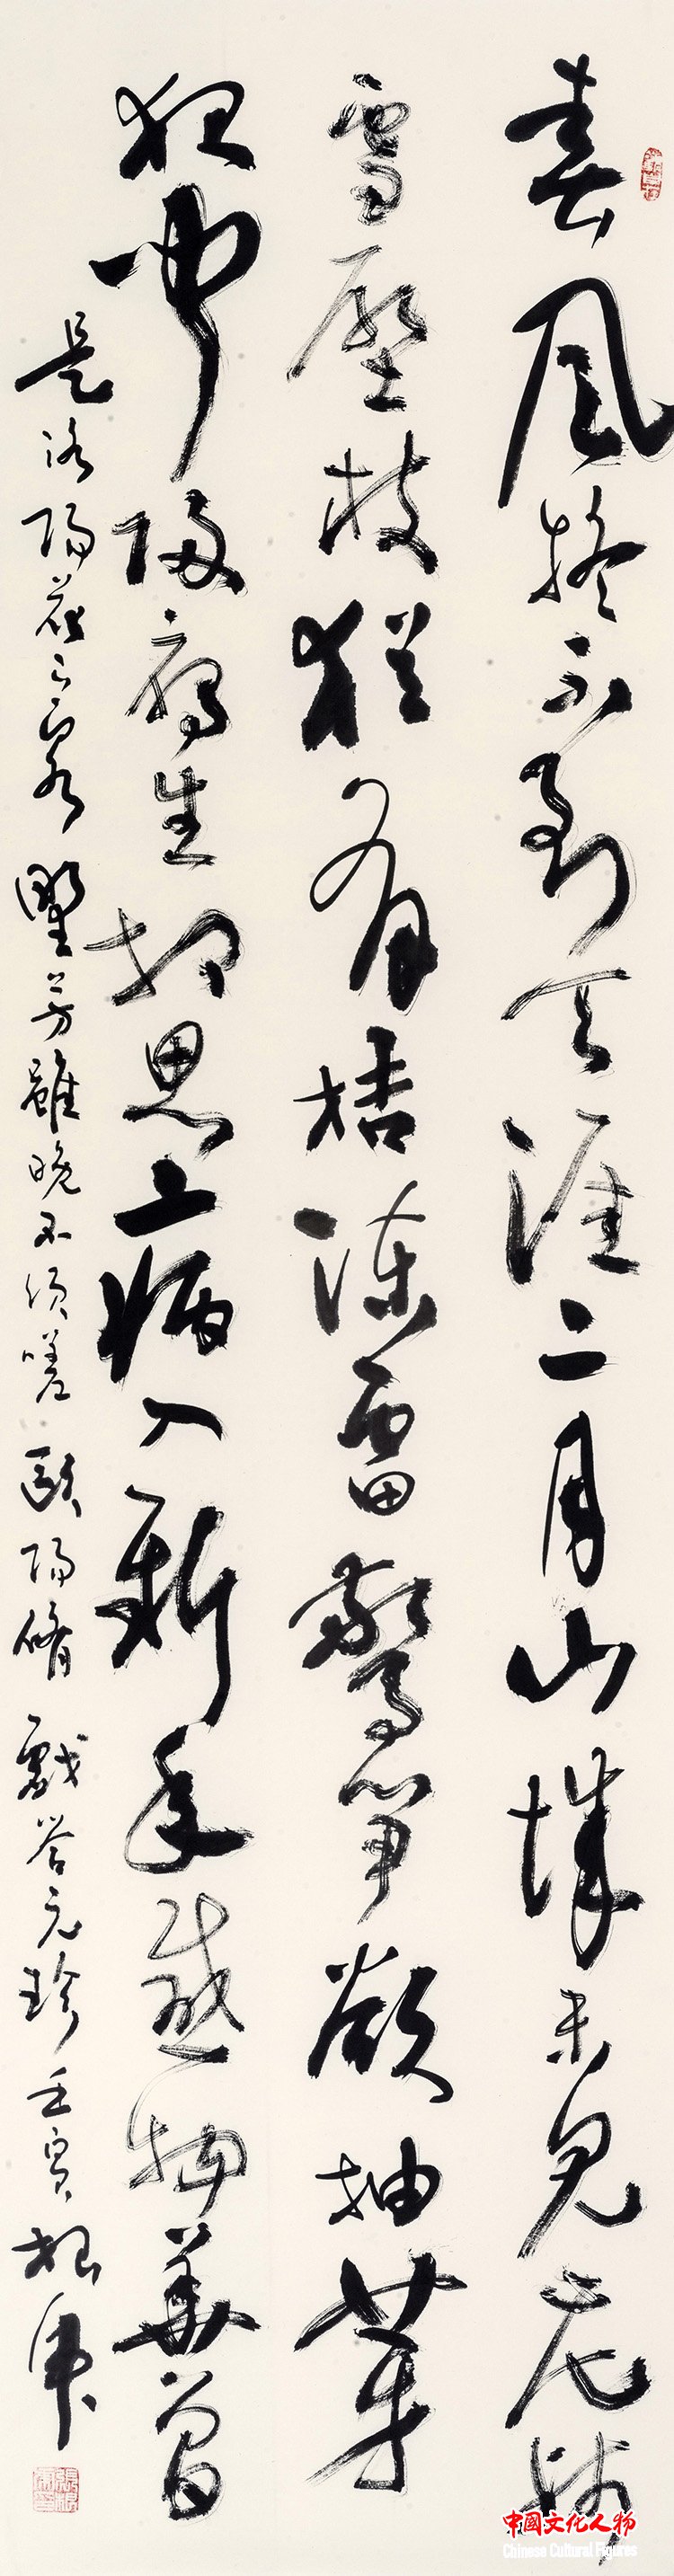 春風疑不到天涯二月山城未見花殘
雪壓枝猶有桔凍雷驚筍欲抽芽
夜聞歸雁生相思病入新年感物華曾
是洛陽花下客野芳雖晚不須嗟 歐陽脩 戲答元珍 壬寅 根虎
中國文化人物
Chinese Cultural Figures